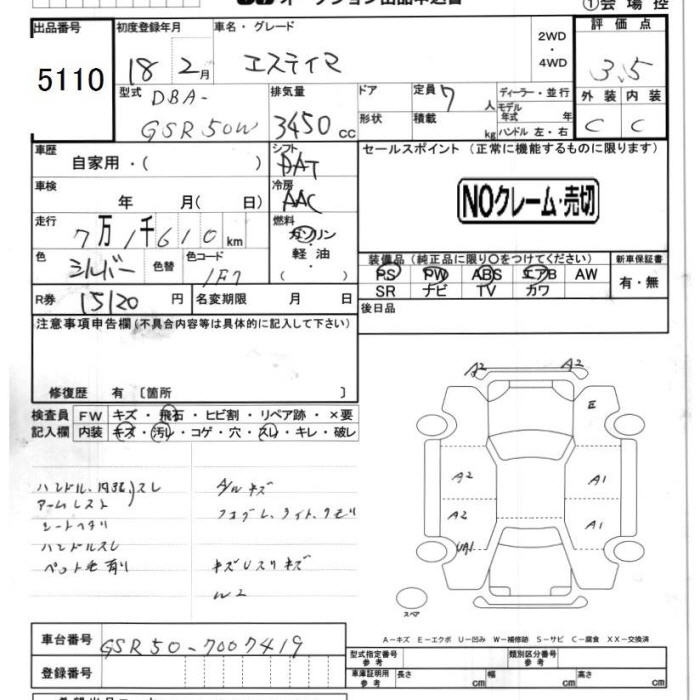 オークション出品申込書
①会場控
出品番号
5110
初度登録年月
18 2月
車名・グレード
エスティマ
2WD
・
4WD
評価点
3.5
外装 内装
C C
型式
DBA-
GSR50W
排気量
3450 cc
ドア
形状
定員 7 人
積載 kg
ディーラー・並行
モデル年式 年
ハンドル 左・右
車歴
自家用・( )
シフト
DAT
セールスポイント (正常に機能するものに限ります)
NOクレーム・売切
車検
年 月( 日)
冷房
AAC
走行
7万1千610 km
燃料
ガソリン
・
軽油
・
( )
色
シルバー
色替
色コード
1F7
装備品(純正品に限り○をつけてください)
PS PW ABS エアB AW
SR ナビ TV カワ
新車保証書
有・無
R券 15120 円
名変期限 月 日
後日品
注意事項申告欄(不具合内容等は具体的に記入して下さい)
修復歴 有 〔箇所 〕
検査員
記入欄
FW キズ・飛石・ヒビ割・リペア跡・×要
内装 キズ・汚レ・コゲ・穴・スレ・キレ・破レ
アームレスト
シートヘタリ
ハンドルスレ
ペット毛有り
アルミキズ
W2
A2 A2
E
A2 A1
A2 A1
UA1
スペア
A-キズ E-エクボ U-凹み W-補修跡 S-サビ C-腐食 XX-交換済
車台番号 GSR50-7007419
登録番号
型式指定番号
参考
類別区分番号
参考
車庫証明用
参考
長さ cm 幅 cm 高さ cm